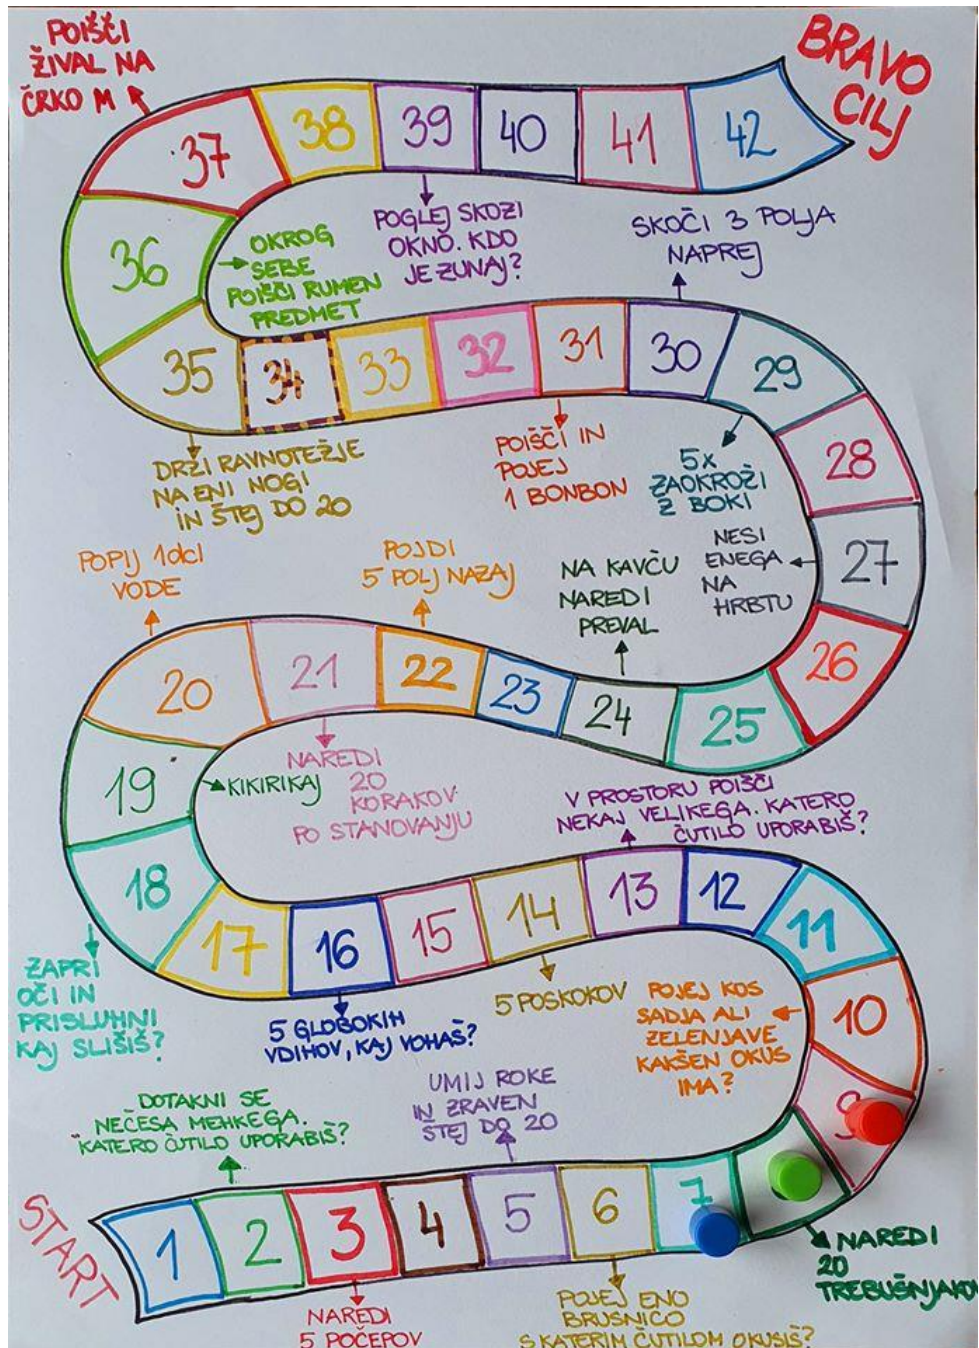 POIŠČI
ŽIVAL NA
ČRKO M
BRAVO
CILJ
37
38
39
40
41
42
36
OKROG
SEBE
POIŠČI RUMEN
PREDMET
POGLEJ SKOZI
OKNO. KDO
JE ZUNAJ?
SKOČI 3 POLJA
NAPREJ
35
34
33
32
31
30
29
28
DRŽI RAVNOTEŽJE
NA ENI NOGI
IN ŠTEJ DO 20
POIŠČI IN
POJEJ
1 BONBON
5x
ZAOKROŽI
Z BOKI
27
NESI
ENEGA
NA
HRBTU
POPIJ 1dcl
VODE
POJDI
5 POLJ NAZAJ
NA KAVČU
NAREDI
PREVAL
20
21
22
23
24
25
26
19
KIKIRIKAJ
NAREDI
20
KORAKOV
PO STANOVANJU
V PROSTORU POIŠČI
NEKAJ VELIKEGA. KATERO
ČUTILO UPORABIŠ?
18
17
16
15
14
13
12
11
ZAPRI
OČI IN
PRISLUHNI
KAJ SLIŠIŠ?
5 GLOBOKIH
VDIHOV, KAJ VOHAŠ?
5 POSKOKOV
POJEJ KOS
SADJA ALI
ZELENJAVE
KAKŠEN OKUS
IMA?
10
9
DOTAKNI SE
NEČESA MEHKEGA.
KATERO ČUTILO UPORABIŠ?
UMIJ ROKE
IN ZRAVEN
ŠTEJ DO 20
START
1
2
3
4
5
6
7
NAREDI
20
TREBUŠNJAKOV
NAREDI
5 POČEPOV
POJEJ ENO
BRUSNICO
S KATERIM ČUTILOM OKUSIŠ?